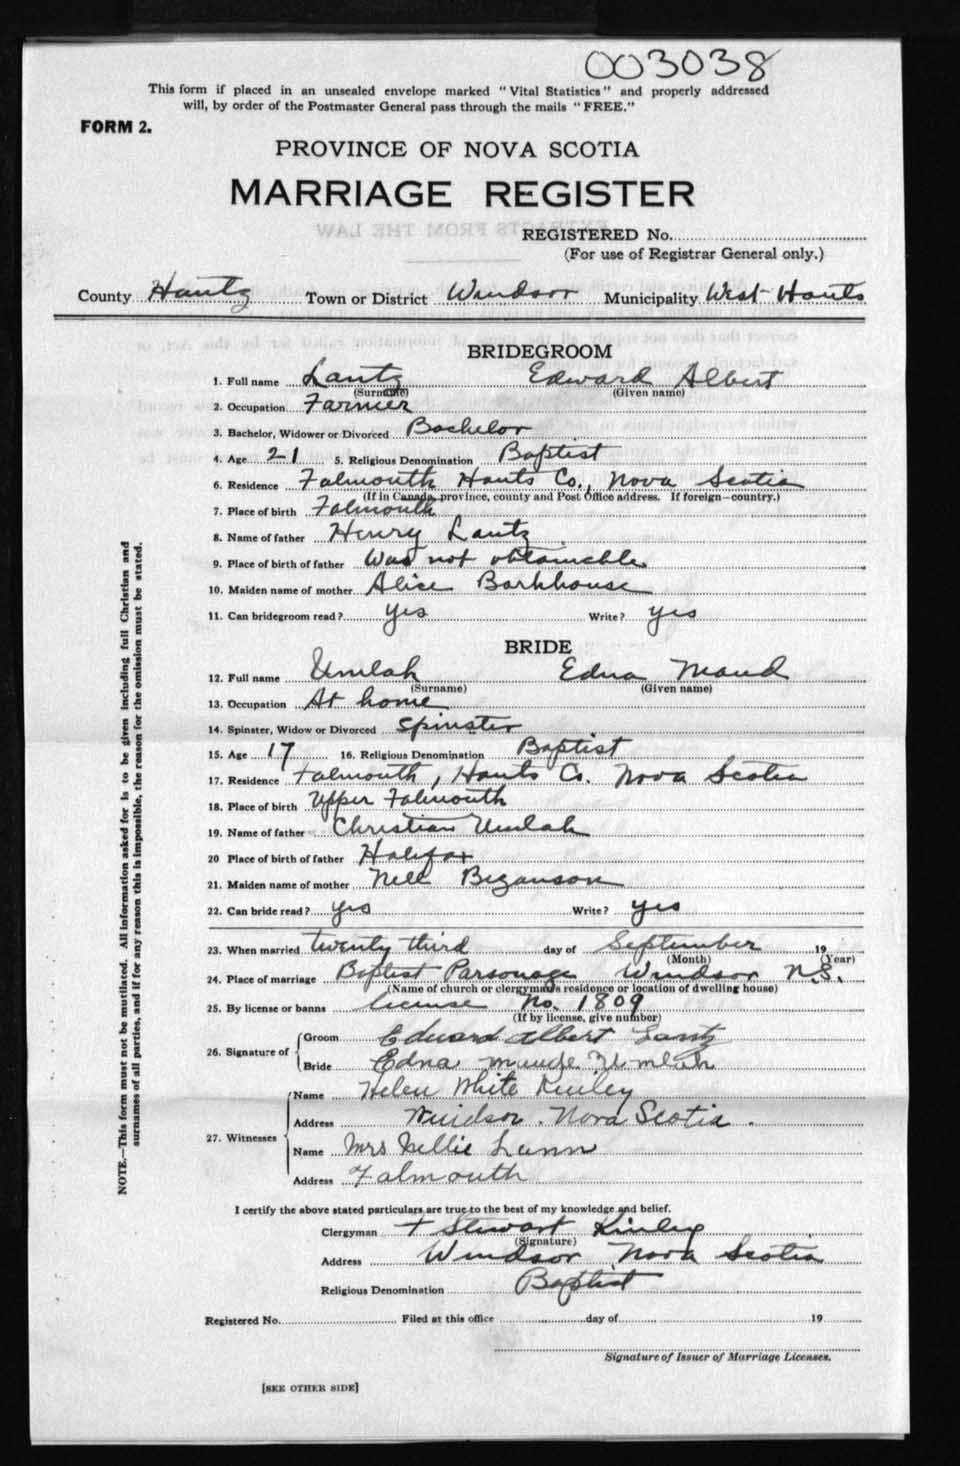 003038
This form if placed in an unsealed envelope marked "Vital Statistics" and properly addressed
will, by order of the Postmaster General pass through the mails "FREE."
FORM 2.
PROVINCE OF NOVA SCOTIA
MARRIAGE REGISTER
EXTRACTS FROM THE LAW
REGISTERED No.
(For use of Registrar General only.)
County Hantz Town or District Windsor Municipality West Hants
BRIDEGROOM
1. Full name Lantz Edward Albert
(Surname) (Given name)
2. Occupation Farmer
3. Bachelor, Widower or Divorced Bachelor
4. Age 21 5. Religious Denomination Baptist
6. Residence Falmouth Hants Co., Nova Scotia
(If in Canada, province, county and Post Office address. If foreign—country.)
7. Place of birth Falmouth
8. Name of father Henry Lantz
9. Place of birth of father Was not obtainable
10. Maiden name of mother Alice Barkhouse
11. Can bridegroom read? yes Write? yes
BRIDE
12. Full name Umlah Edna Maud
(Surname) (Given name)
13. Occupation At home
14. Spinster, Widow or Divorced Spinster
15. Age 17 16. Religious Denomination Baptist
17. Residence Falmouth, Hants Co. Nova Scotia
18. Place of birth Upper Falmouth
19. Name of father Christian Umlah
20 Place of birth of father Halifax
21. Maiden name of mother Nell Bezanson
22. Can bride read? yes Write? yes
23. When married twenty third day of September 19
(Month) (Year)
24. Place of marriage Baptist Parsonage Windsor N.S.
(Name of church or clergyman's residence or location of dwelling house)
25. By license or banns license No. 1809
(If by license, give number)
26. Signature of Groom Edward Albert Lantz
Bride Edna Maude Umlah
27. Witnesses Name Helen White Kinley
Address Windsor. Nova Scotia.
Name Mrs Nellie Lunn
Address Falmouth
I certify the above stated particulars are true to the best of my knowledge and belief.
Clergyman Stewart Kinley
(Signature)
Address Windsor Nova Scotia
Religious Denomination Baptist
Registered No. Filed at this office day of 19
Signature of Issuer of Marriage Licenses.
[SEE OTHER SIDE]
NOTE.—This form must not be mutilated. All information asked for is to be given including full Christian and
surnames of all parties, and if for any reason this is impossible, the reason for the omission must be stated.